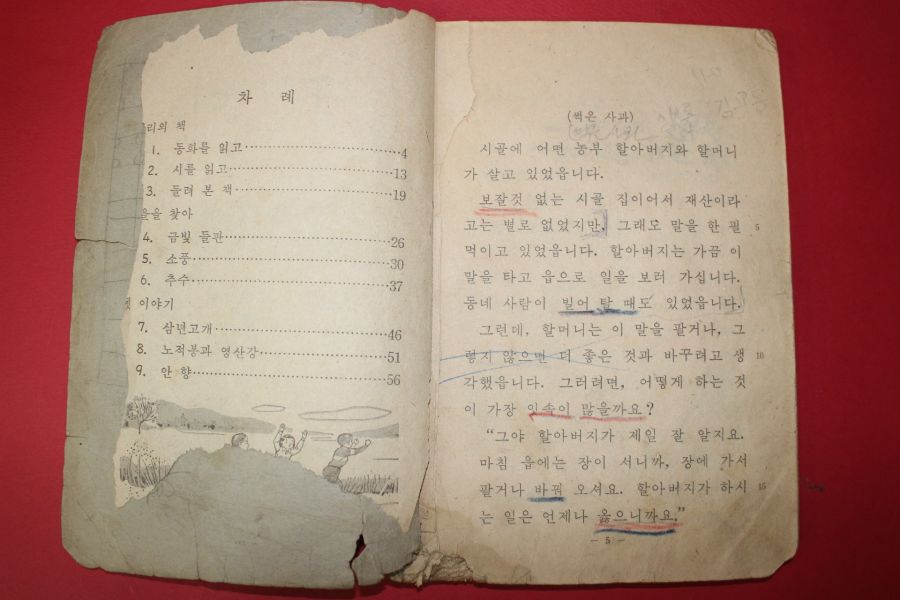 차 례
리의 책
1. 동화를 읽고 4
2. 시를 읽고 13
3. 돌려 본 책 19
을 찾아
4. 금빛 들판 26
5. 소풍 30
6. 추수 37
이야기
7. 삼년고개 46
8. 노적봉과 영산강 51
9. 안 향 56
(썩은 사과)
시골에 어떤 농부 할아버지와 할머니
가 살고 있었읍니다.
보잘것 없는 시골 집이어서 재산이라
고는 별로 없었지만, 그래도 말을 한 필 5
먹이고 있었읍니다. 할아버지는 가끔 이
말을 타고 읍으로 일을 보러 가십니다.
동네 사람이 빌어 탈 때도 있었읍니다.
그런데, 할머니는 이 말을 팔거나, 그
렇지 않으면 더 좋은 것과 바꾸려고 생 10
각했읍니다. 그러려면, 어떻게 하는 것
이 가장 잇속이 많을까요?
“그야 할아버지가 제일 잘 알지요.
마침 읍에는 장이 서니까, 장에 가서
팔거나 바꿔 오셔요. 할아버지가 하시 15
는 일은 언제나 옳으니까요.”
— 5 —